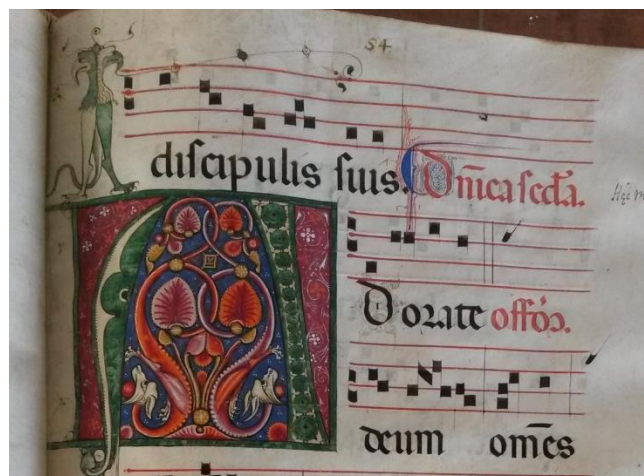 54
diſcipulis ſuis. Dn̄ica ſecd̄a.
A
Dorate offō.
deum om̄es